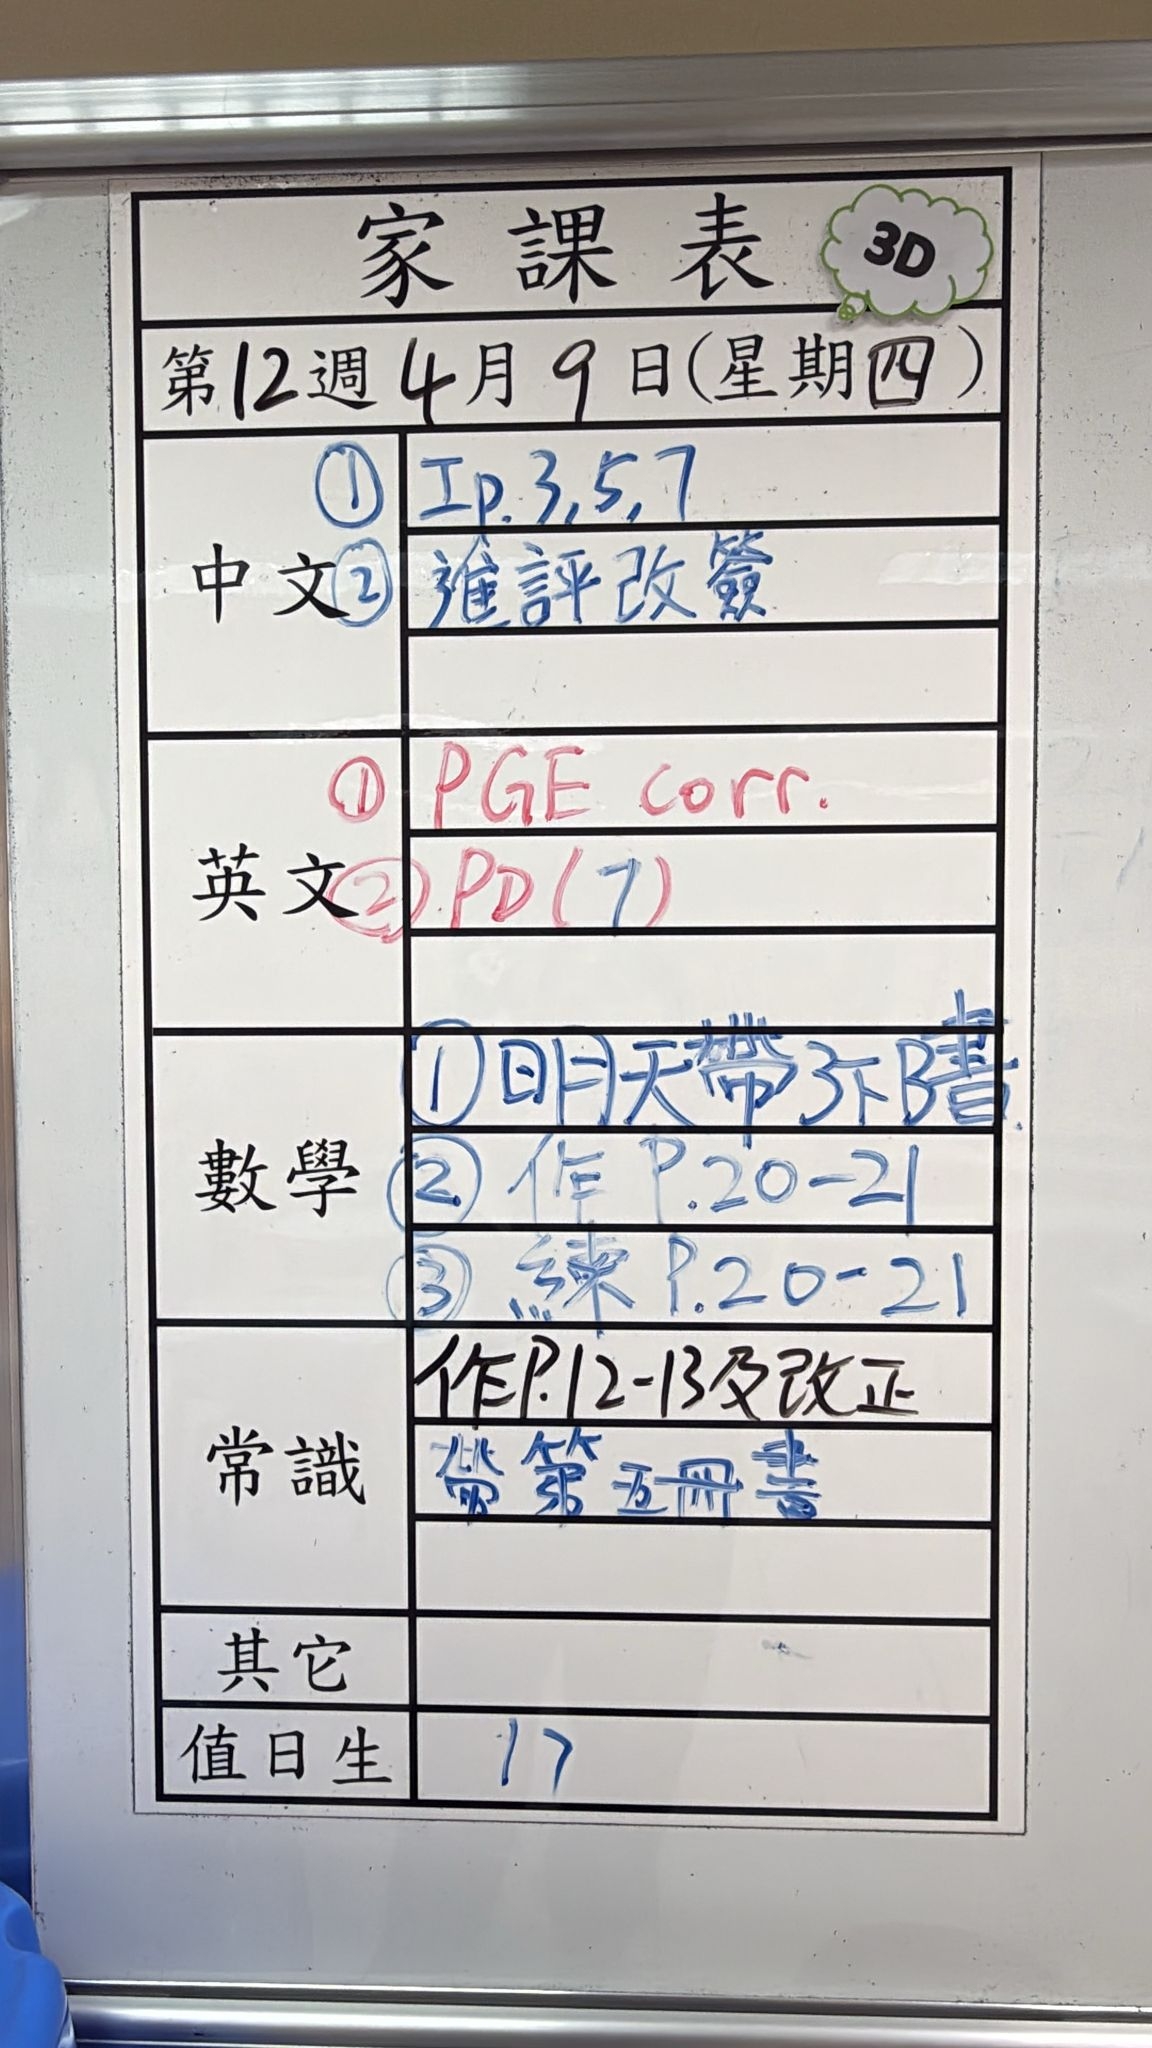 家課表 3D
第12週4月9日(星期四)
中文
① 工p.3,5,7
② 進評改簽
英文
① PGE corr.
② PD(7)
數學
① 明天帶3下B書
② 作 P.20-21
③ 練 P.20-21
常識
作P.12-13及改正
帶第五冊書
其它
值日生 17